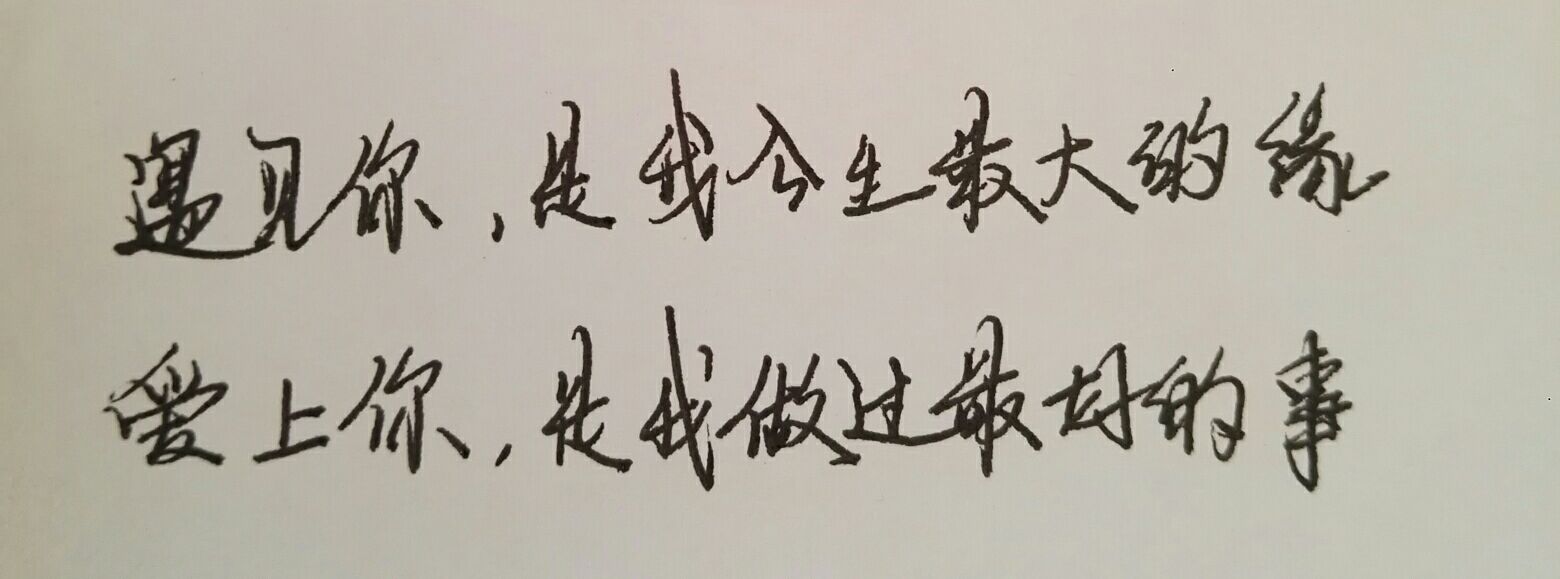 遇见你，是我今生最大的缘
爱上你，是我做过最好的事